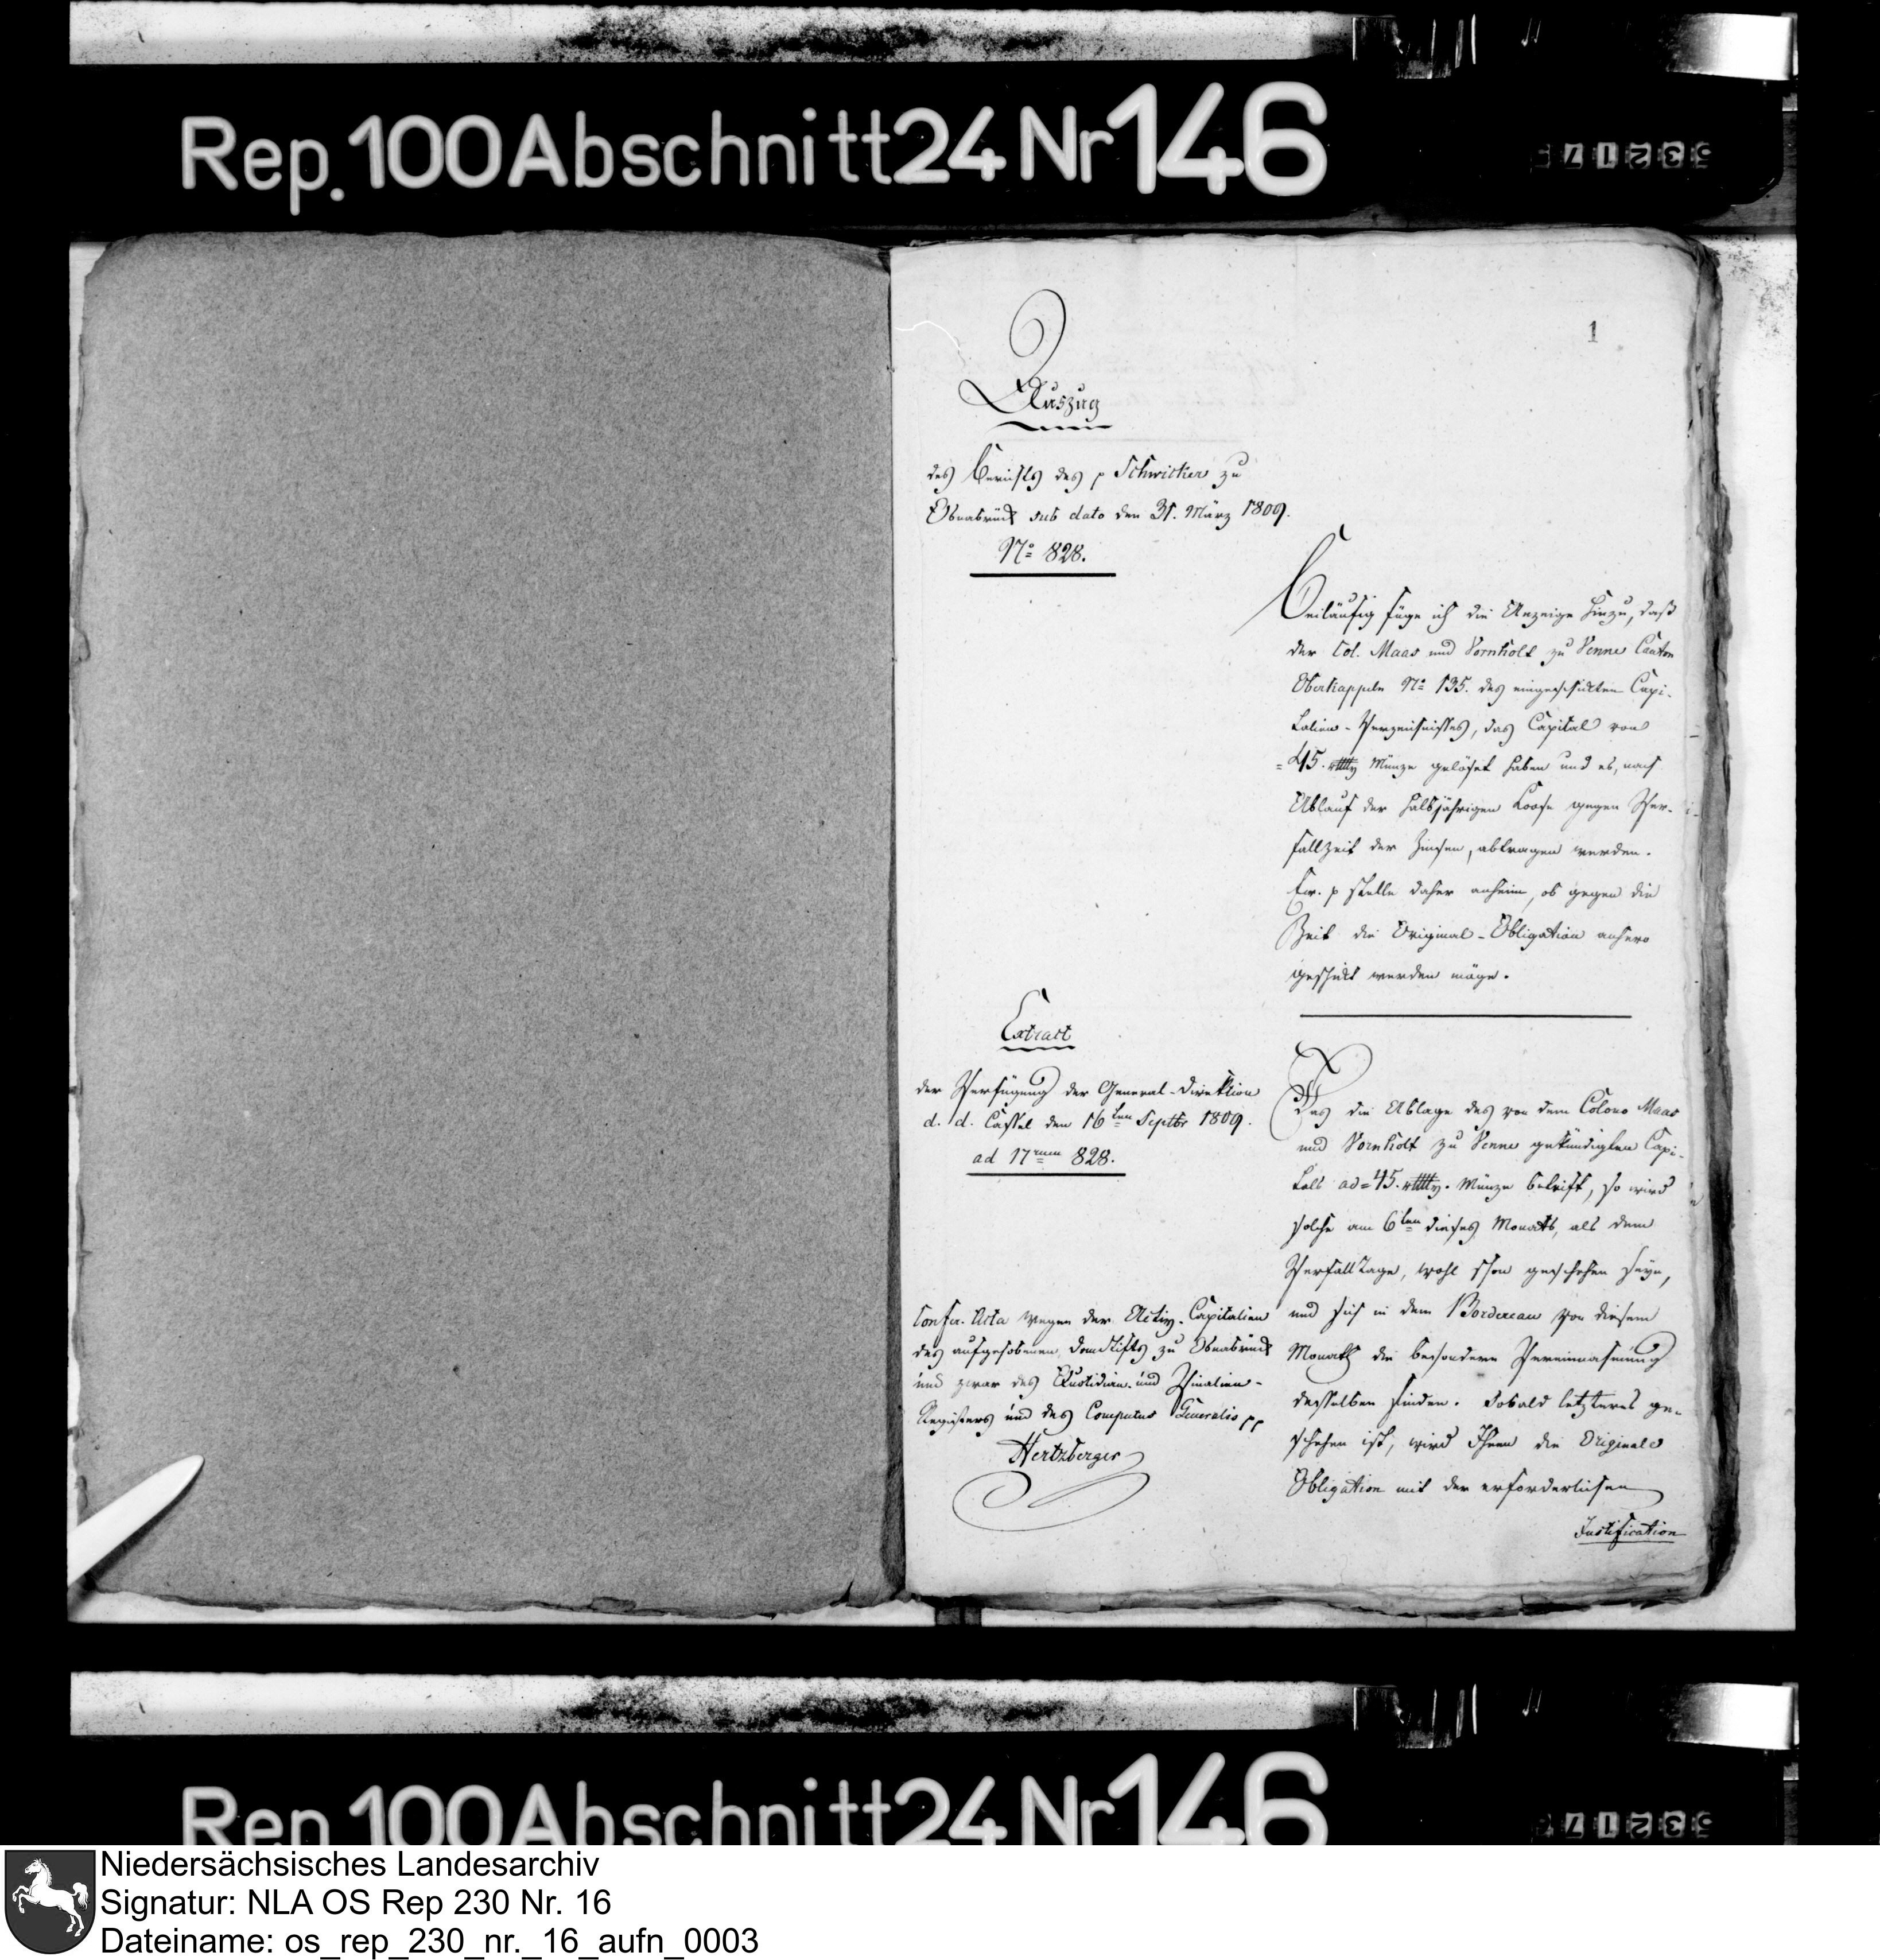 Rep. 100 Abschnitt 24 Nr 146
53217
1
Auszug
des Berichts des p Schwicker zu
Osnabrück sub dato den 31. März 1809.
No 828.
Beiläufig füge ich die Anzeige hinzu, daß
der Col. Maas und Vornholt zu Venne Canton
Osterkappeln No 135. des eingeschickten Capi-
talien-Verzeichnisses, das Capital von
45. Münze gelöset haben und es, nach
Ablauf der halbjährigen Loose gegen Ver-
fallzeit der Zinsen, abtragen werden.
Ew. p stelle daher anheim, ob gegen die
Zeit die Original-Obligation anhero
geschickt werden möge.
Extract
der Verfügung der General-Direktion
d. d. Cassel den 16ten Septbr 1809.
ad Num 828.
Das die Ablage des von dem Colono Maas
und Vornholt zu Venne gekündigten Capi-
tals ad 45. Münze betrift, so wird
solche am 6ten dieses Monats, als dem
Verfalltage, wohl schon geschehen seyn,
und sich in dem Bordereau von diesem
Monath die besondere Vereinnahmung
desselben finden. Sobald letzteres ge-
schehen ist, wird Ihnen die Original
Obligation mit der erforderlichen
Justification
Confer. Acta wegen der Activ-Capitalien
des aufgehobenen Domstifts zu Osnabrück
und zwar des Quotidian- und Vinalien-
Registers und des Computus Generalis pp
Hertzberger
Rep. 100 Abschnitt 24 Nr 146
53217
Niedersächsisches Landesarchiv
Signatur: NLA OS Rep 230 Nr. 16
Dateiname: os_rep_230_nr._16_aufn_0003